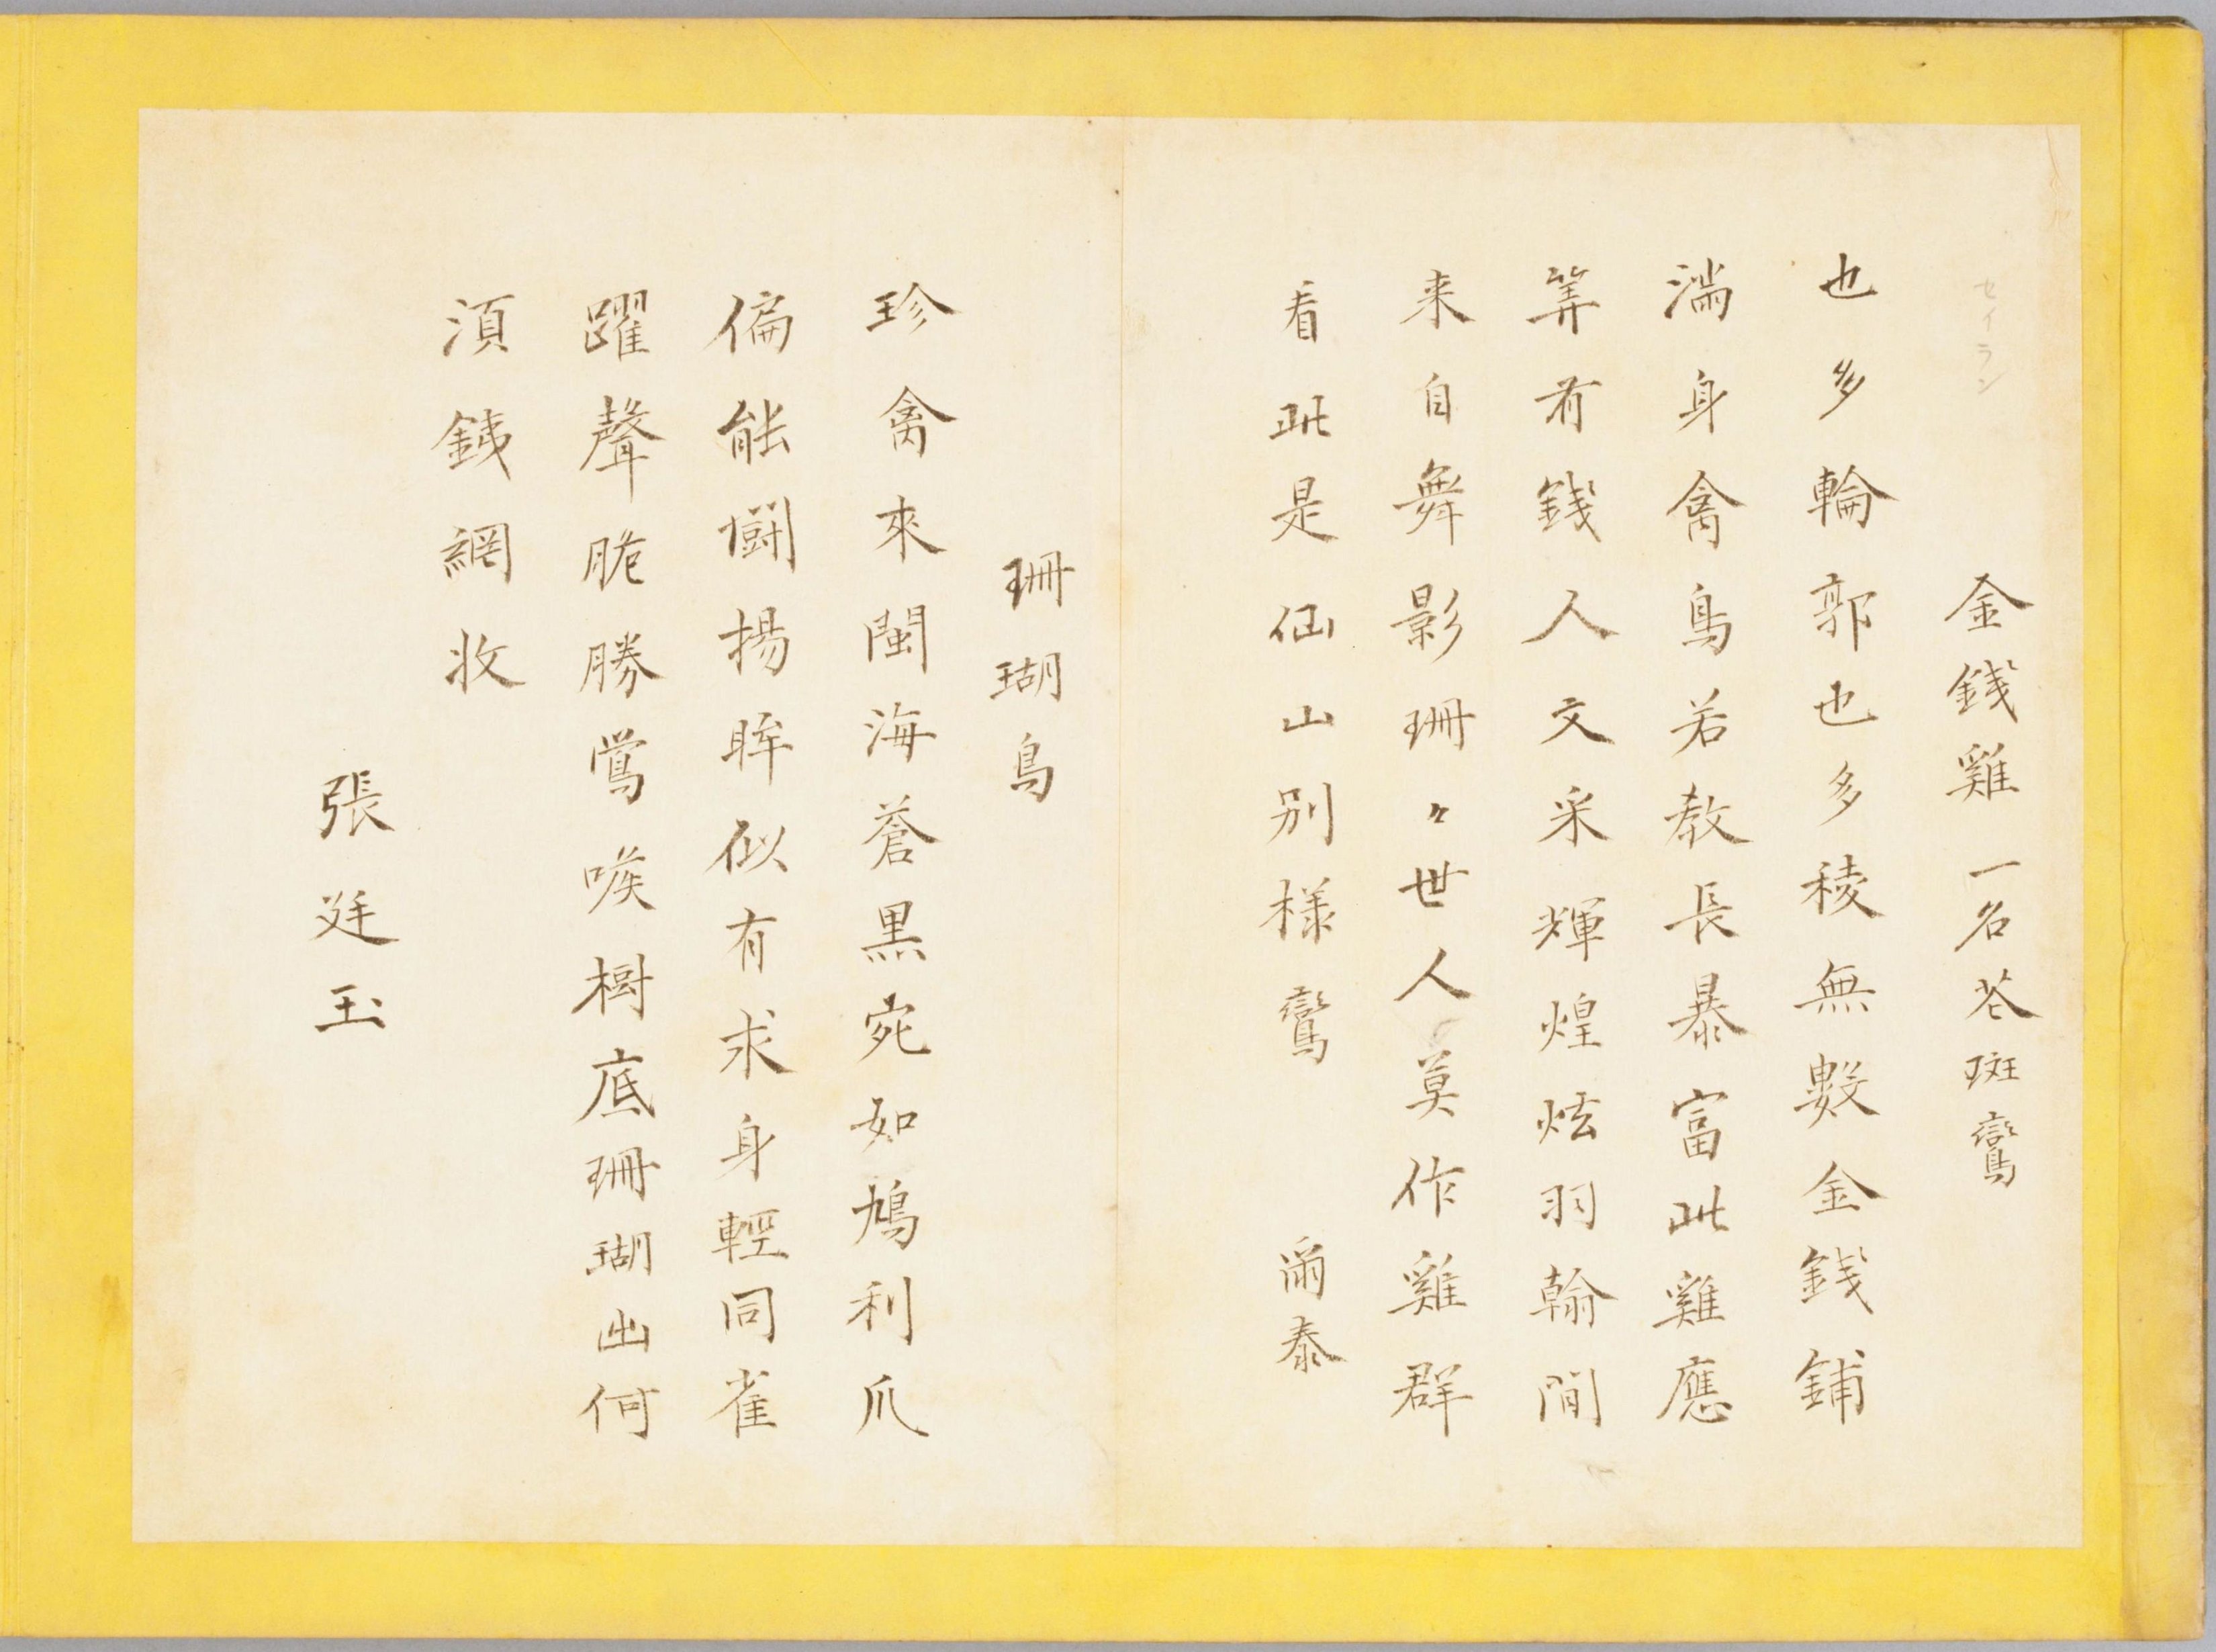 セイラン
金錢雞一名花斑鸞
也多輪郭也多稜無數金錢鋪
滿身禽鳥若教長暴富此雞應
筭有錢人文采輝煌炫羽翰閒
来自舞影珊々世人莫作雞群
看此是仙山別様鸞　爾泰
珊瑚鳥
珍禽來閩海蒼黒宛如鳩利爪
偏能鬭揚眸似有求身輕同雀
躍聲脆勝鶯喉樹底珊瑚出何
湏銕網收
張廷玉